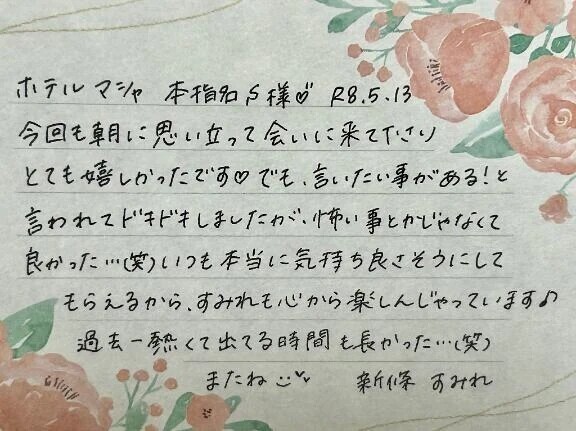 ホテル マシャ 本指名S様♡ R8.5.13
今回も朝に思い立って会いに来て下さり
とても嬉しかったです♡でも、言いたい事がある!と
言われてドキドキしましたが、怖い事とかじゃなくて
良かった…(笑)いつも本当に気持ち良さそうにして
もらえるから、すみれも心から楽しんじゃっています♪
過去一熱くて出てる時間も長かった…(笑)
またね 新條 すみれ